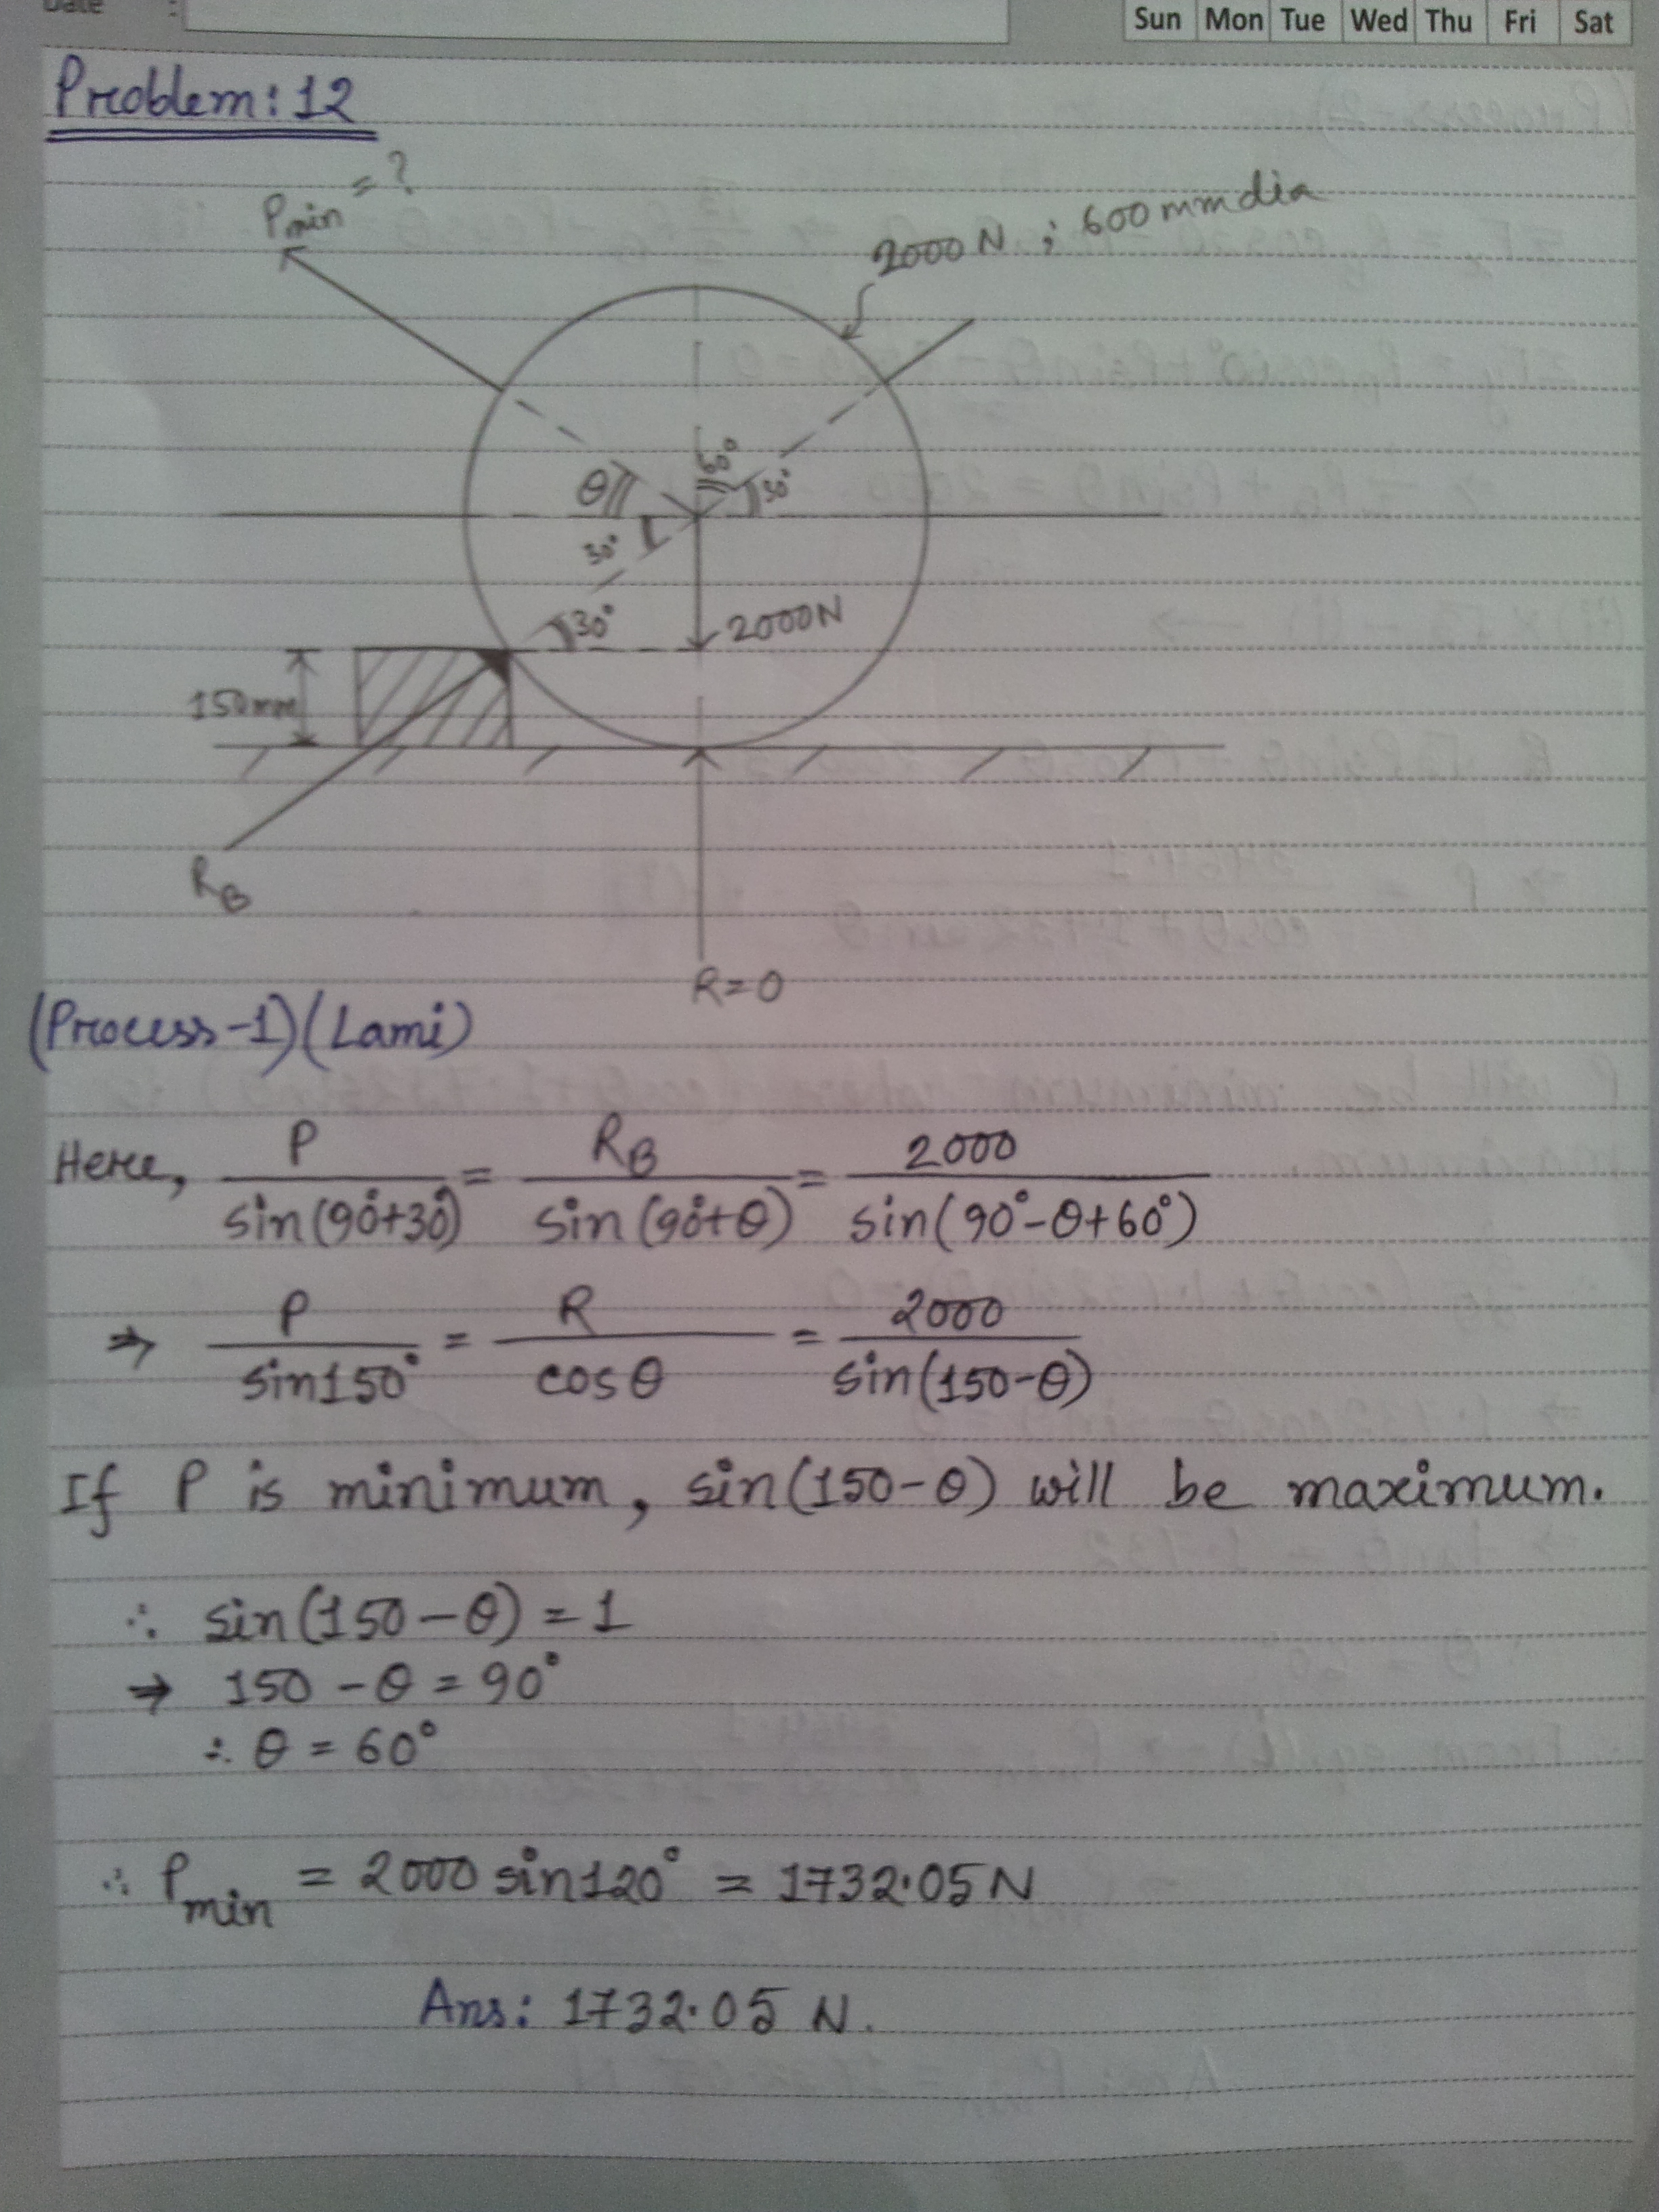 Date :
Sun Mon Tue Wed Thu Fri Sat
Problem: 12
Pmin = ?
2000 N ; 600 mm dia
60°
θ
30°
30°
30°
2000N
150mm
RB
R=0
(Process-1)(Lami)
Here, P/sin(90°+30°) = RB/sin(90°+θ) = 2000/sin(90°-θ+60°)
⇒ P/sin150° = R/cosθ = 2000/sin(150-θ)
If P is minimum, sin(150-θ) will be maximum.
∴ sin(150-θ) = 1
⇒ 150 - θ = 90°
∴ θ = 60°
∴ Pmin = 2000 sin120° = 1732.05 N
Ans: 1732.05 N.